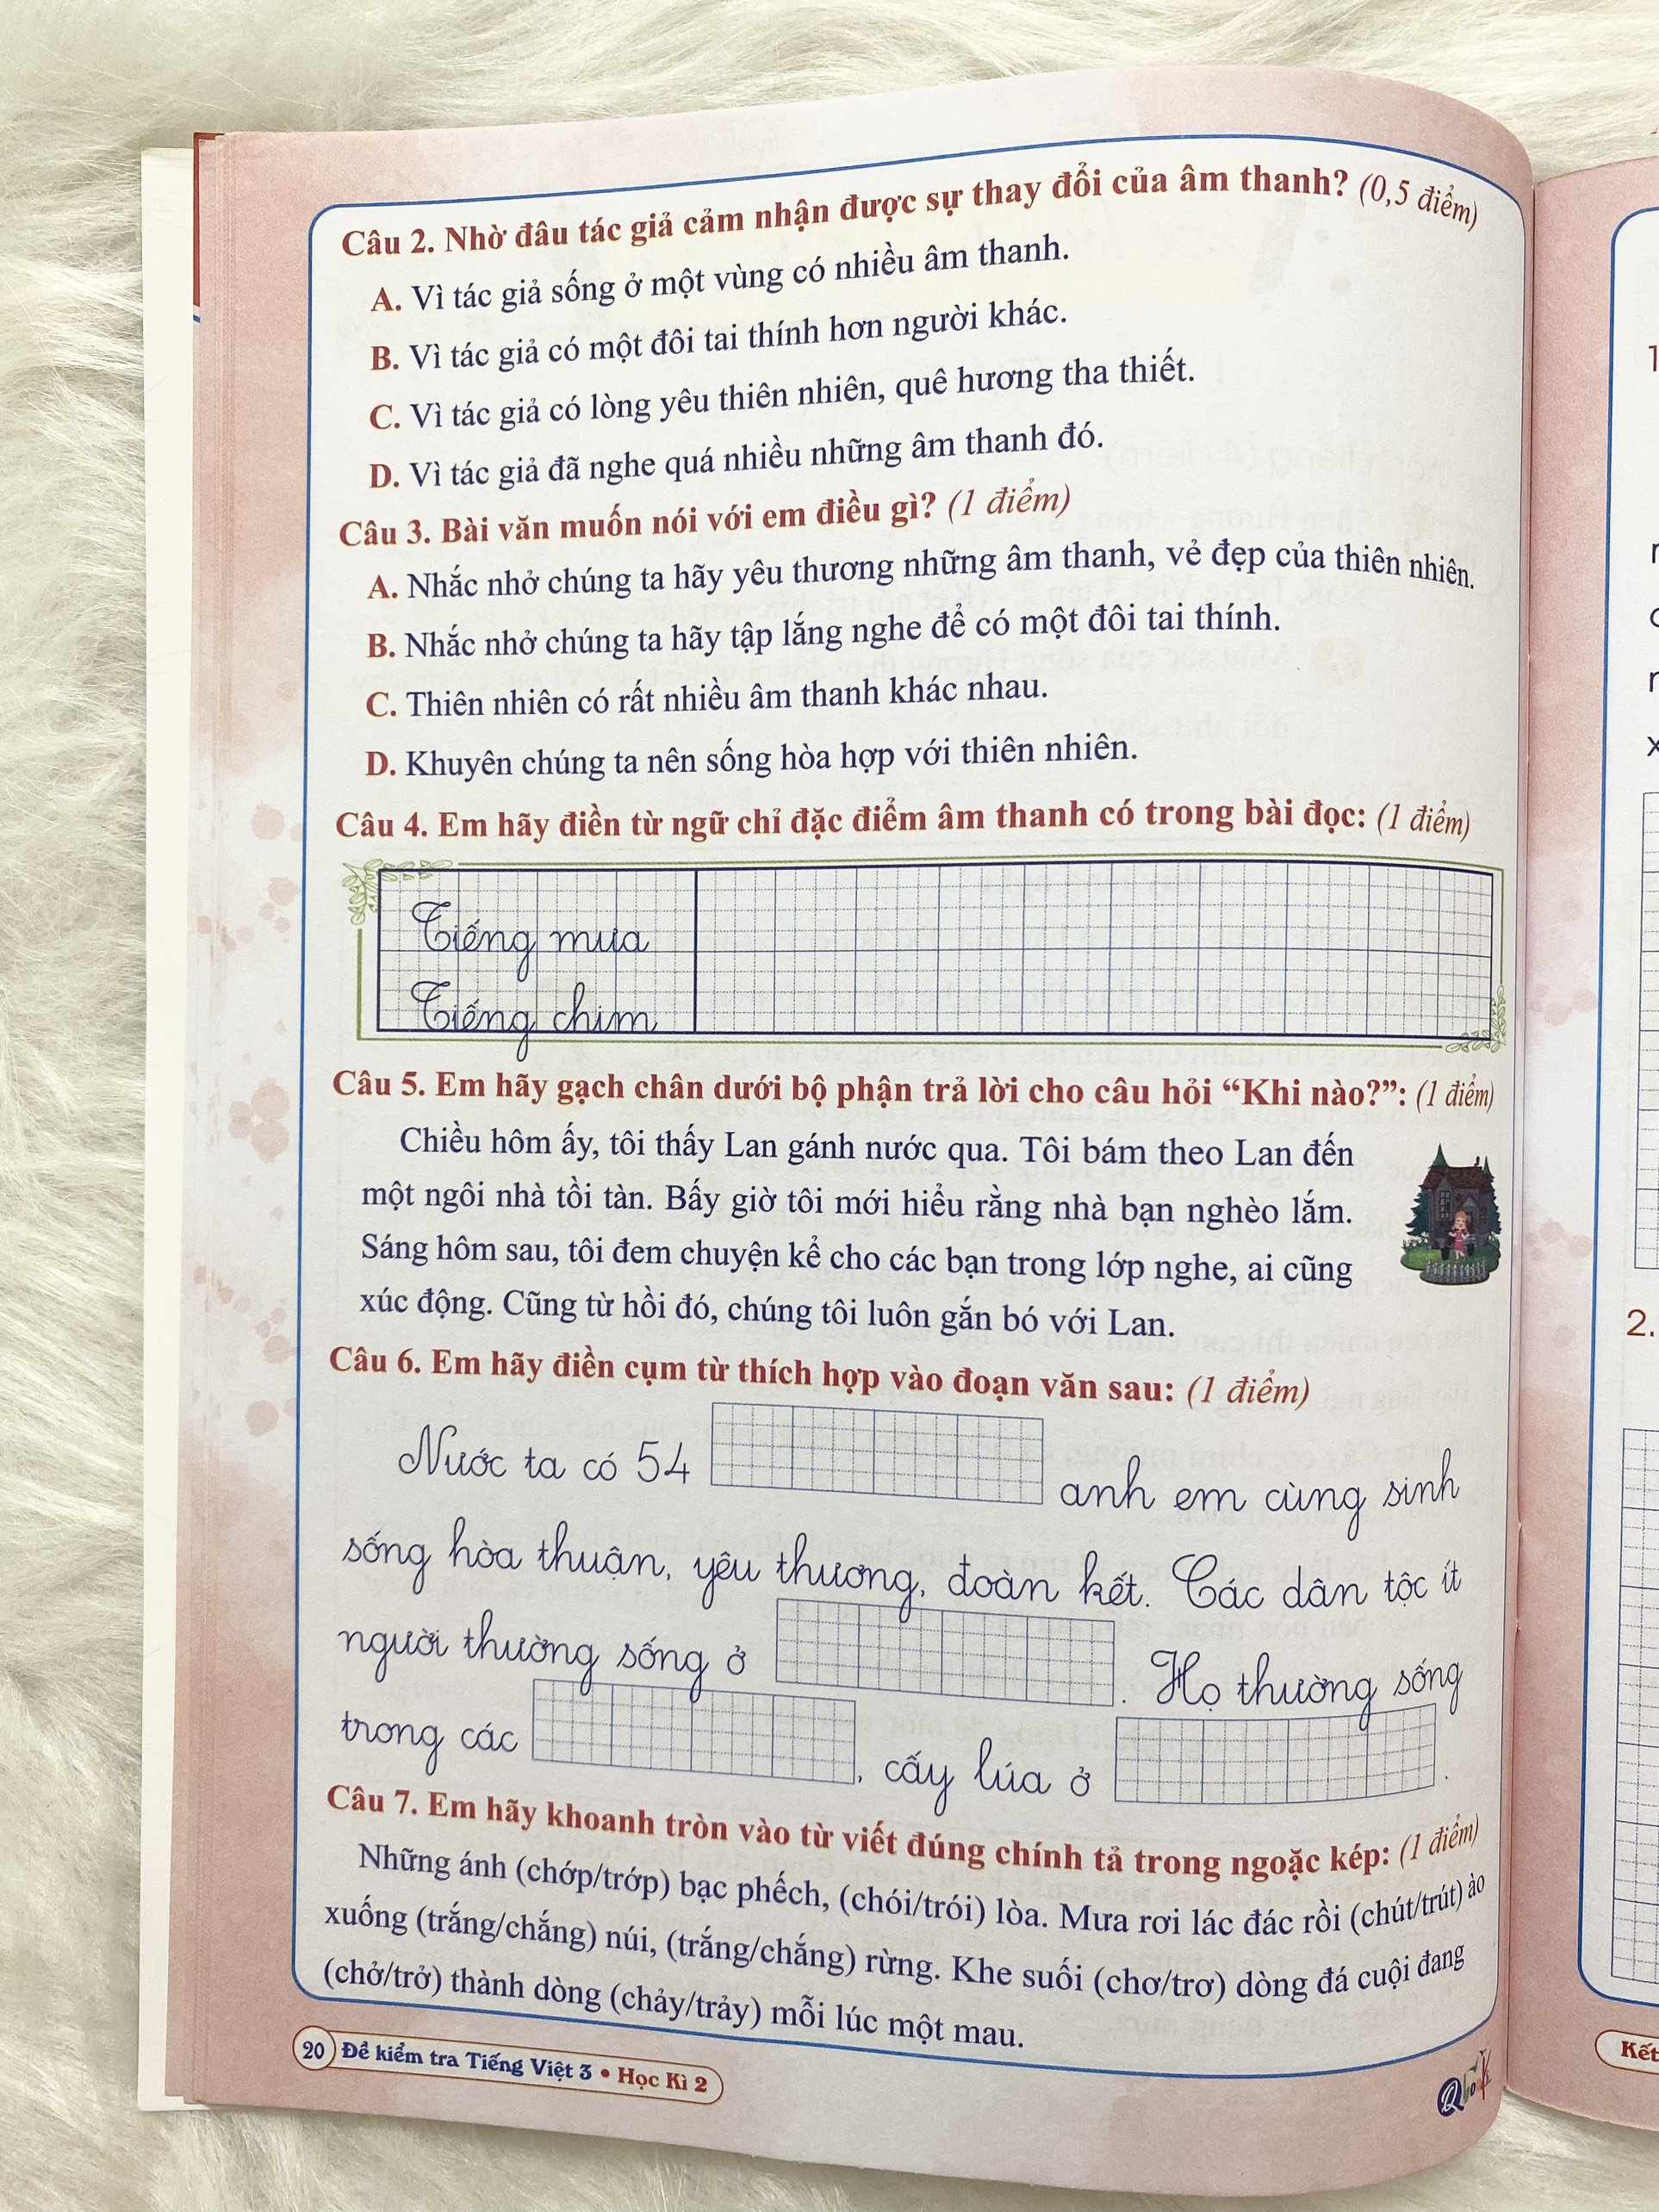 Câu 2. Nhờ đâu tác giả cảm nhận được sự thay đổi của âm thanh? (0,5 điểm)
A. Vì tác giả sống ở một vùng có nhiều âm thanh.
B. Vì tác giả có một đôi tai thính hơn người khác.
C. Vì tác giả có lòng yêu thiên nhiên, quê hương tha thiết.
D. Vì tác giả đã nghe quá nhiều những âm thanh đó.
Câu 3. Bài văn muốn nói với em điều gì? (1 điểm)
A. Nhắc nhở chúng ta hãy yêu thương những âm thanh, vẻ đẹp của thiên nhiên.
B. Nhắc nhở chúng ta hãy tập lắng nghe để có một đôi tai thính.
C. Thiên nhiên có rất nhiều âm thanh khác nhau.
D. Khuyên chúng ta nên sống hòa hợp với thiên nhiên.
Câu 4. Em hãy điền từ ngữ chỉ đặc điểm âm thanh có trong bài đọc: (1 điểm)
Tiếng mưa
Tiếng chim
Câu 5. Em hãy gạch chân dưới bộ phận trả lời cho câu hỏi “Khi nào?”: (1 điểm)
Chiều hôm ấy, tôi thấy Lan gánh nước qua. Tôi bám theo Lan đến
một ngôi nhà tồi tàn. Bấy giờ tôi mới hiểu rằng nhà bạn nghèo lắm.
Sáng hôm sau, tôi đem chuyện kể cho các bạn trong lớp nghe, ai cũng
xúc động. Cũng từ hồi đó, chúng tôi luôn gắn bó với Lan.
Câu 6. Em hãy điền cụm từ thích hợp vào đoạn văn sau: (1 điểm)
Nước ta có 54 anh em cùng sinh
sống hòa thuận, yêu thương, đoàn kết. Các dân tộc ít
người thường sống ở . Họ thường sống
trong các , cấy lúa ở .
Câu 7. Em hãy khoanh tròn vào từ viết đúng chính tả trong ngoặc kép: (1 điểm)
Những ánh (chớp/trớp) bạc phếch, (chói/trói) lòa. Mưa rơi lác đác rồi (chút/trút) ào
xuống (trắng/chắng) núi, (trắng/chắng) rừng. Khe suối (chơ/trơ) dòng đá cuội đang
(chở/trở) thành dòng (chảy/trảy) mỗi lúc một mau.
20 Đề kiểm tra Tiếng Việt 3 • Học Kì 2
Qbooks
1
2.
Kết